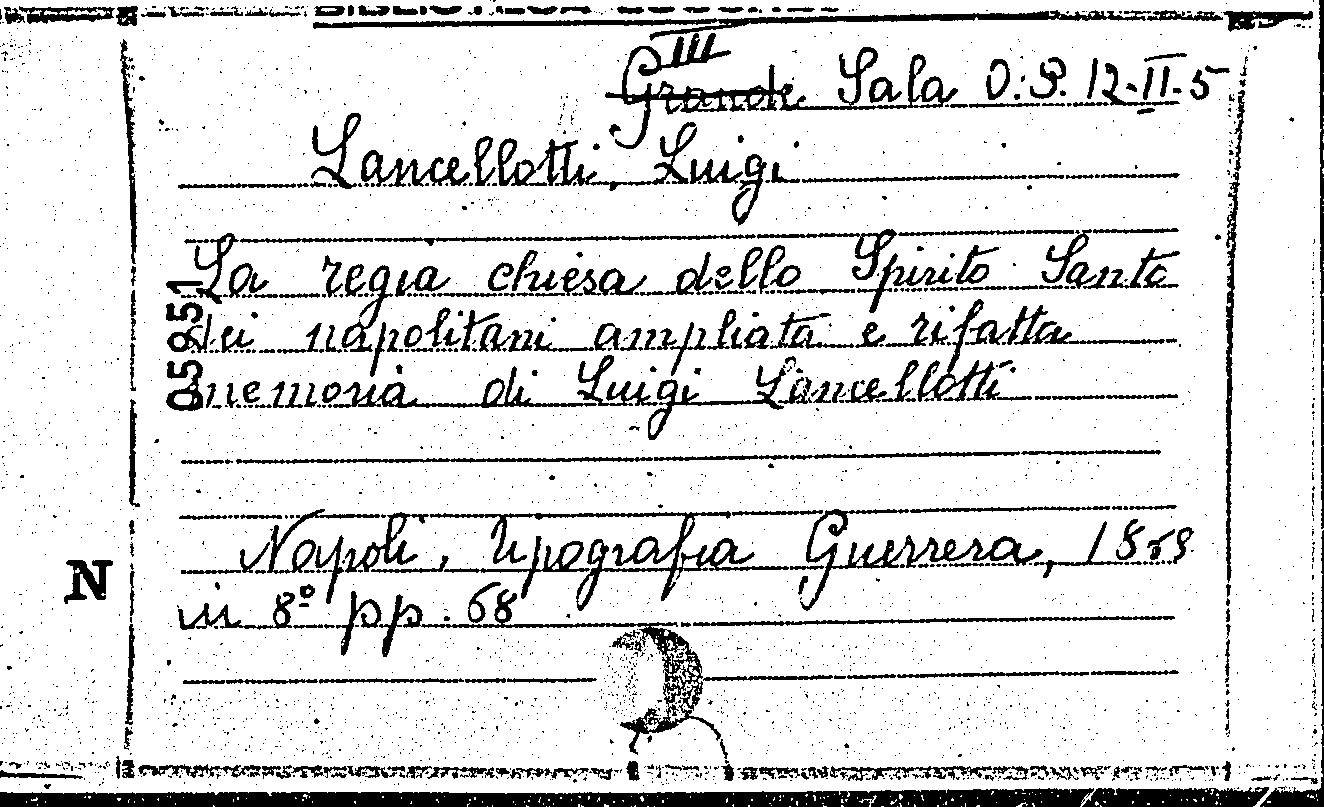 III
Grande Sala O.S. 12-II-5
Lancellotti, Luigi
La regia chiesa dello Spirito Santo
dei napolitani ampliata e rifatta
memoria di Luigi Lancellotti
05951
Napoli, Tipografia Guerrera, 1868
in 8º pp. 68
N